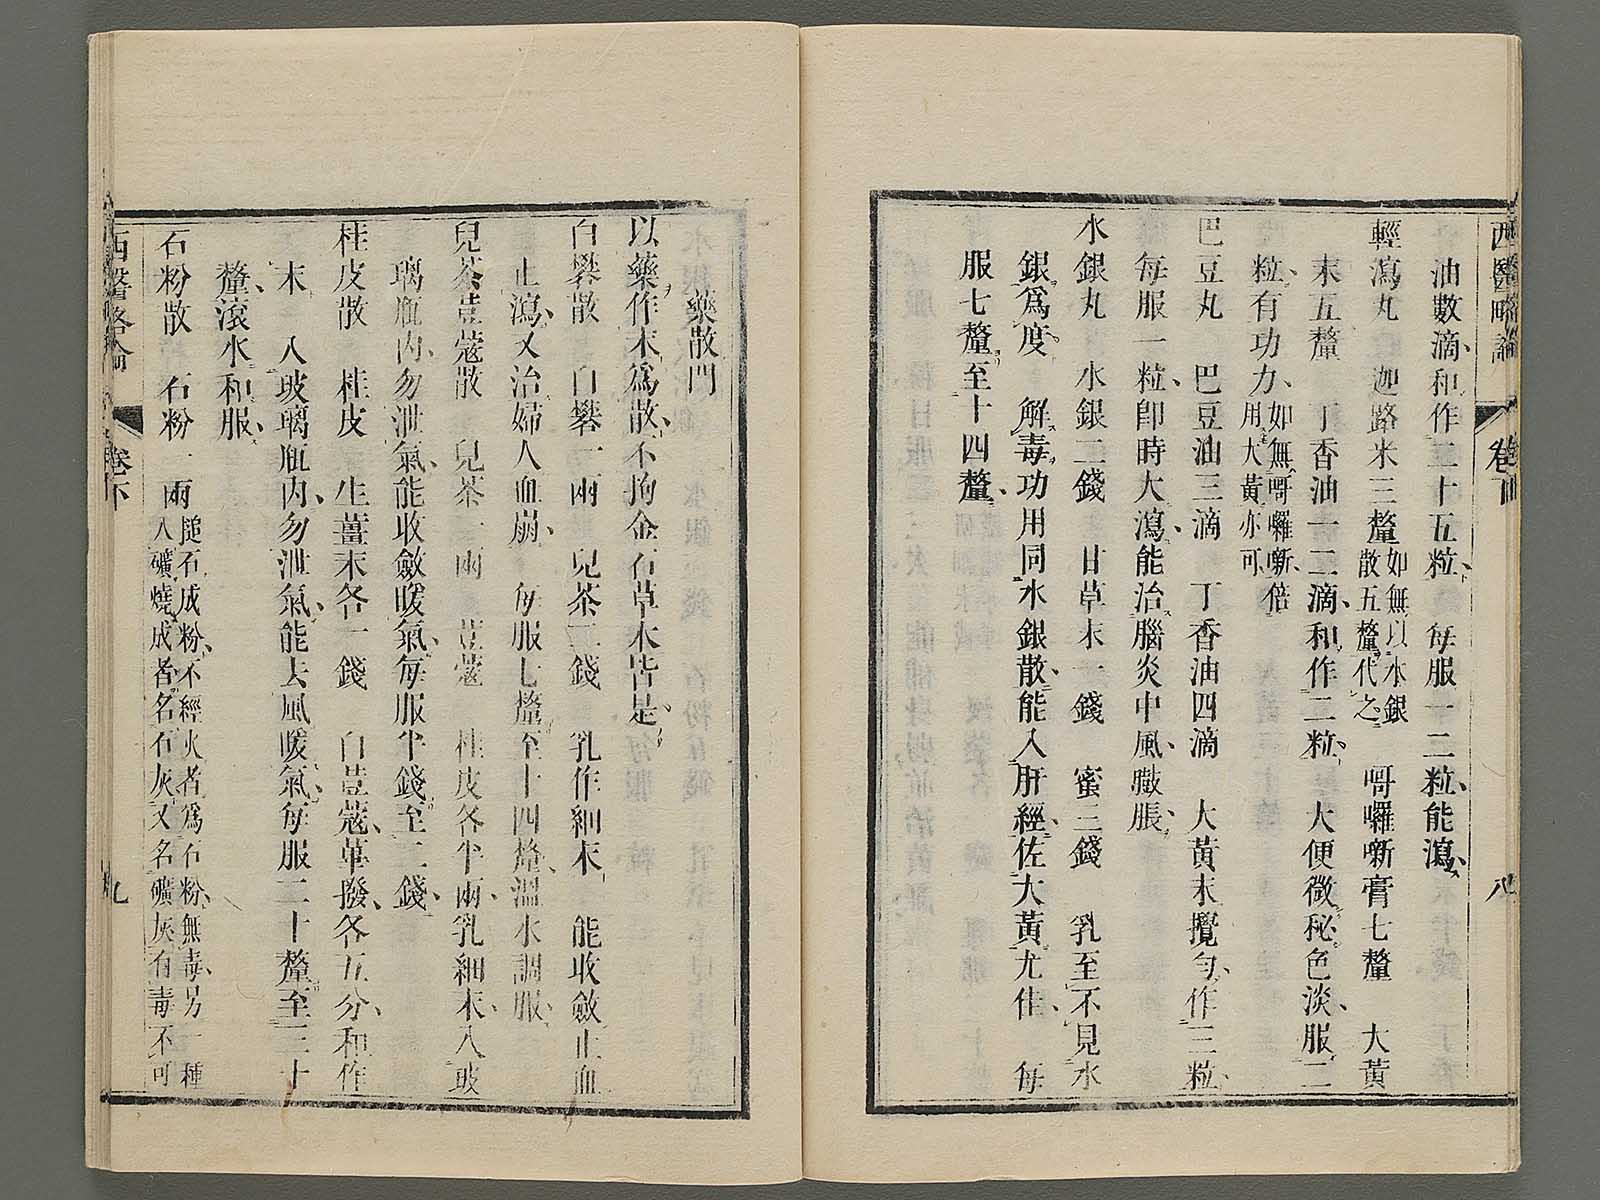 西醫畧論 卷下 八
油數滴和作二十五粒、每服一二粒、能瀉、
輕瀉丸 迦路米三釐 如無以水銀散五釐代之 哥囉噺膏七釐 大黃
末五釐 丁香油一二滴、和作二粒、 大便微秘色淡、服二
粒、有功力、如無哥囉噺、倍用大黃亦可、
巴豆丸 巴豆油三滴 丁香油四滴 大黃末攪勻、作三粒
每服一粒、卽時大瀉、能治腦炎中風臌脹、
水銀丸 水銀二錢 甘草末一錢 蜜三錢 乳至不見水
銀爲度 解毒功用同水銀散、能入肝經、佐大黃尤佳、 每
服七釐至十四釐、
藥散門
以藥作末爲散、不拘金石草木皆是、
白礬散 白礬一兩 兒茶二錢 乳作細末、 能收斂止血
止瀉、又治婦人血崩、 每服七釐至十四釐、溫水調服、
兒茶荳蔻散 兒茶一兩 荳蔻 桂皮各半兩、乳細末、入玻
璃瓶內、勿泄氣、能收斂暖氣、每服半錢至二錢、
桂皮散 桂皮 生薑末各一錢 白荳蔻、蓽撥、各五分、和作
末 入玻璃瓶內、勿泄氣、能去風暖氣、每服二十釐至三十
釐、滾水和服、
石粉散 石粉一兩 搥石成粉、不經火者爲石粉、無毒、另一種入礦燒成者名石灰又名礦灰有毒不可
西醫畧論 卷下 九